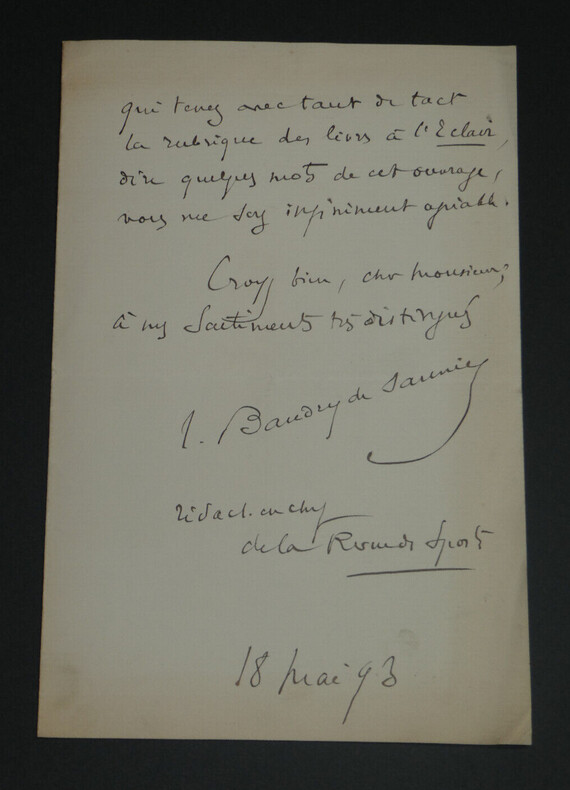 qui tenez avec tant de tact
la rubrique des livres à l'Eclair,
dire quelques mots de cet ouvrage,
vous me serez infiniment agréable.
Croyez bien, cher monsieur,
à mes sentiments très distingués
L. Baudry de Saunier
rédact. en chef
de la Revue des Sports
18 mai 93